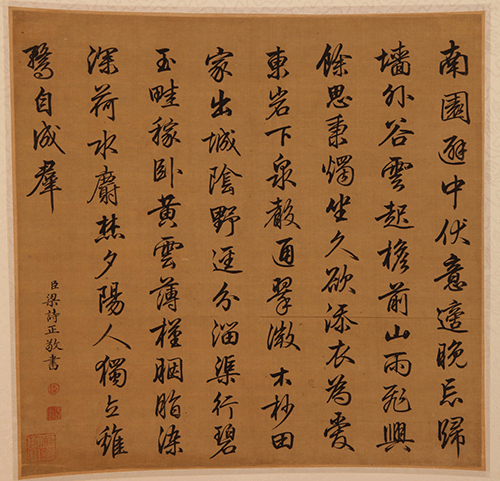 南園避中伏意適晚忘歸
墻外谷雲起檐前山雨飛興
餘思秉燭坐久欲添衣為愛
東岩下泉聲通翠微木杪田
家出城陰野逕分溜渠行碧
玉畦稼卧黃雲薄槿胭脂染
深荷水麝焚夕陽人獨立
鷺自成羣
臣梁詩正敬書